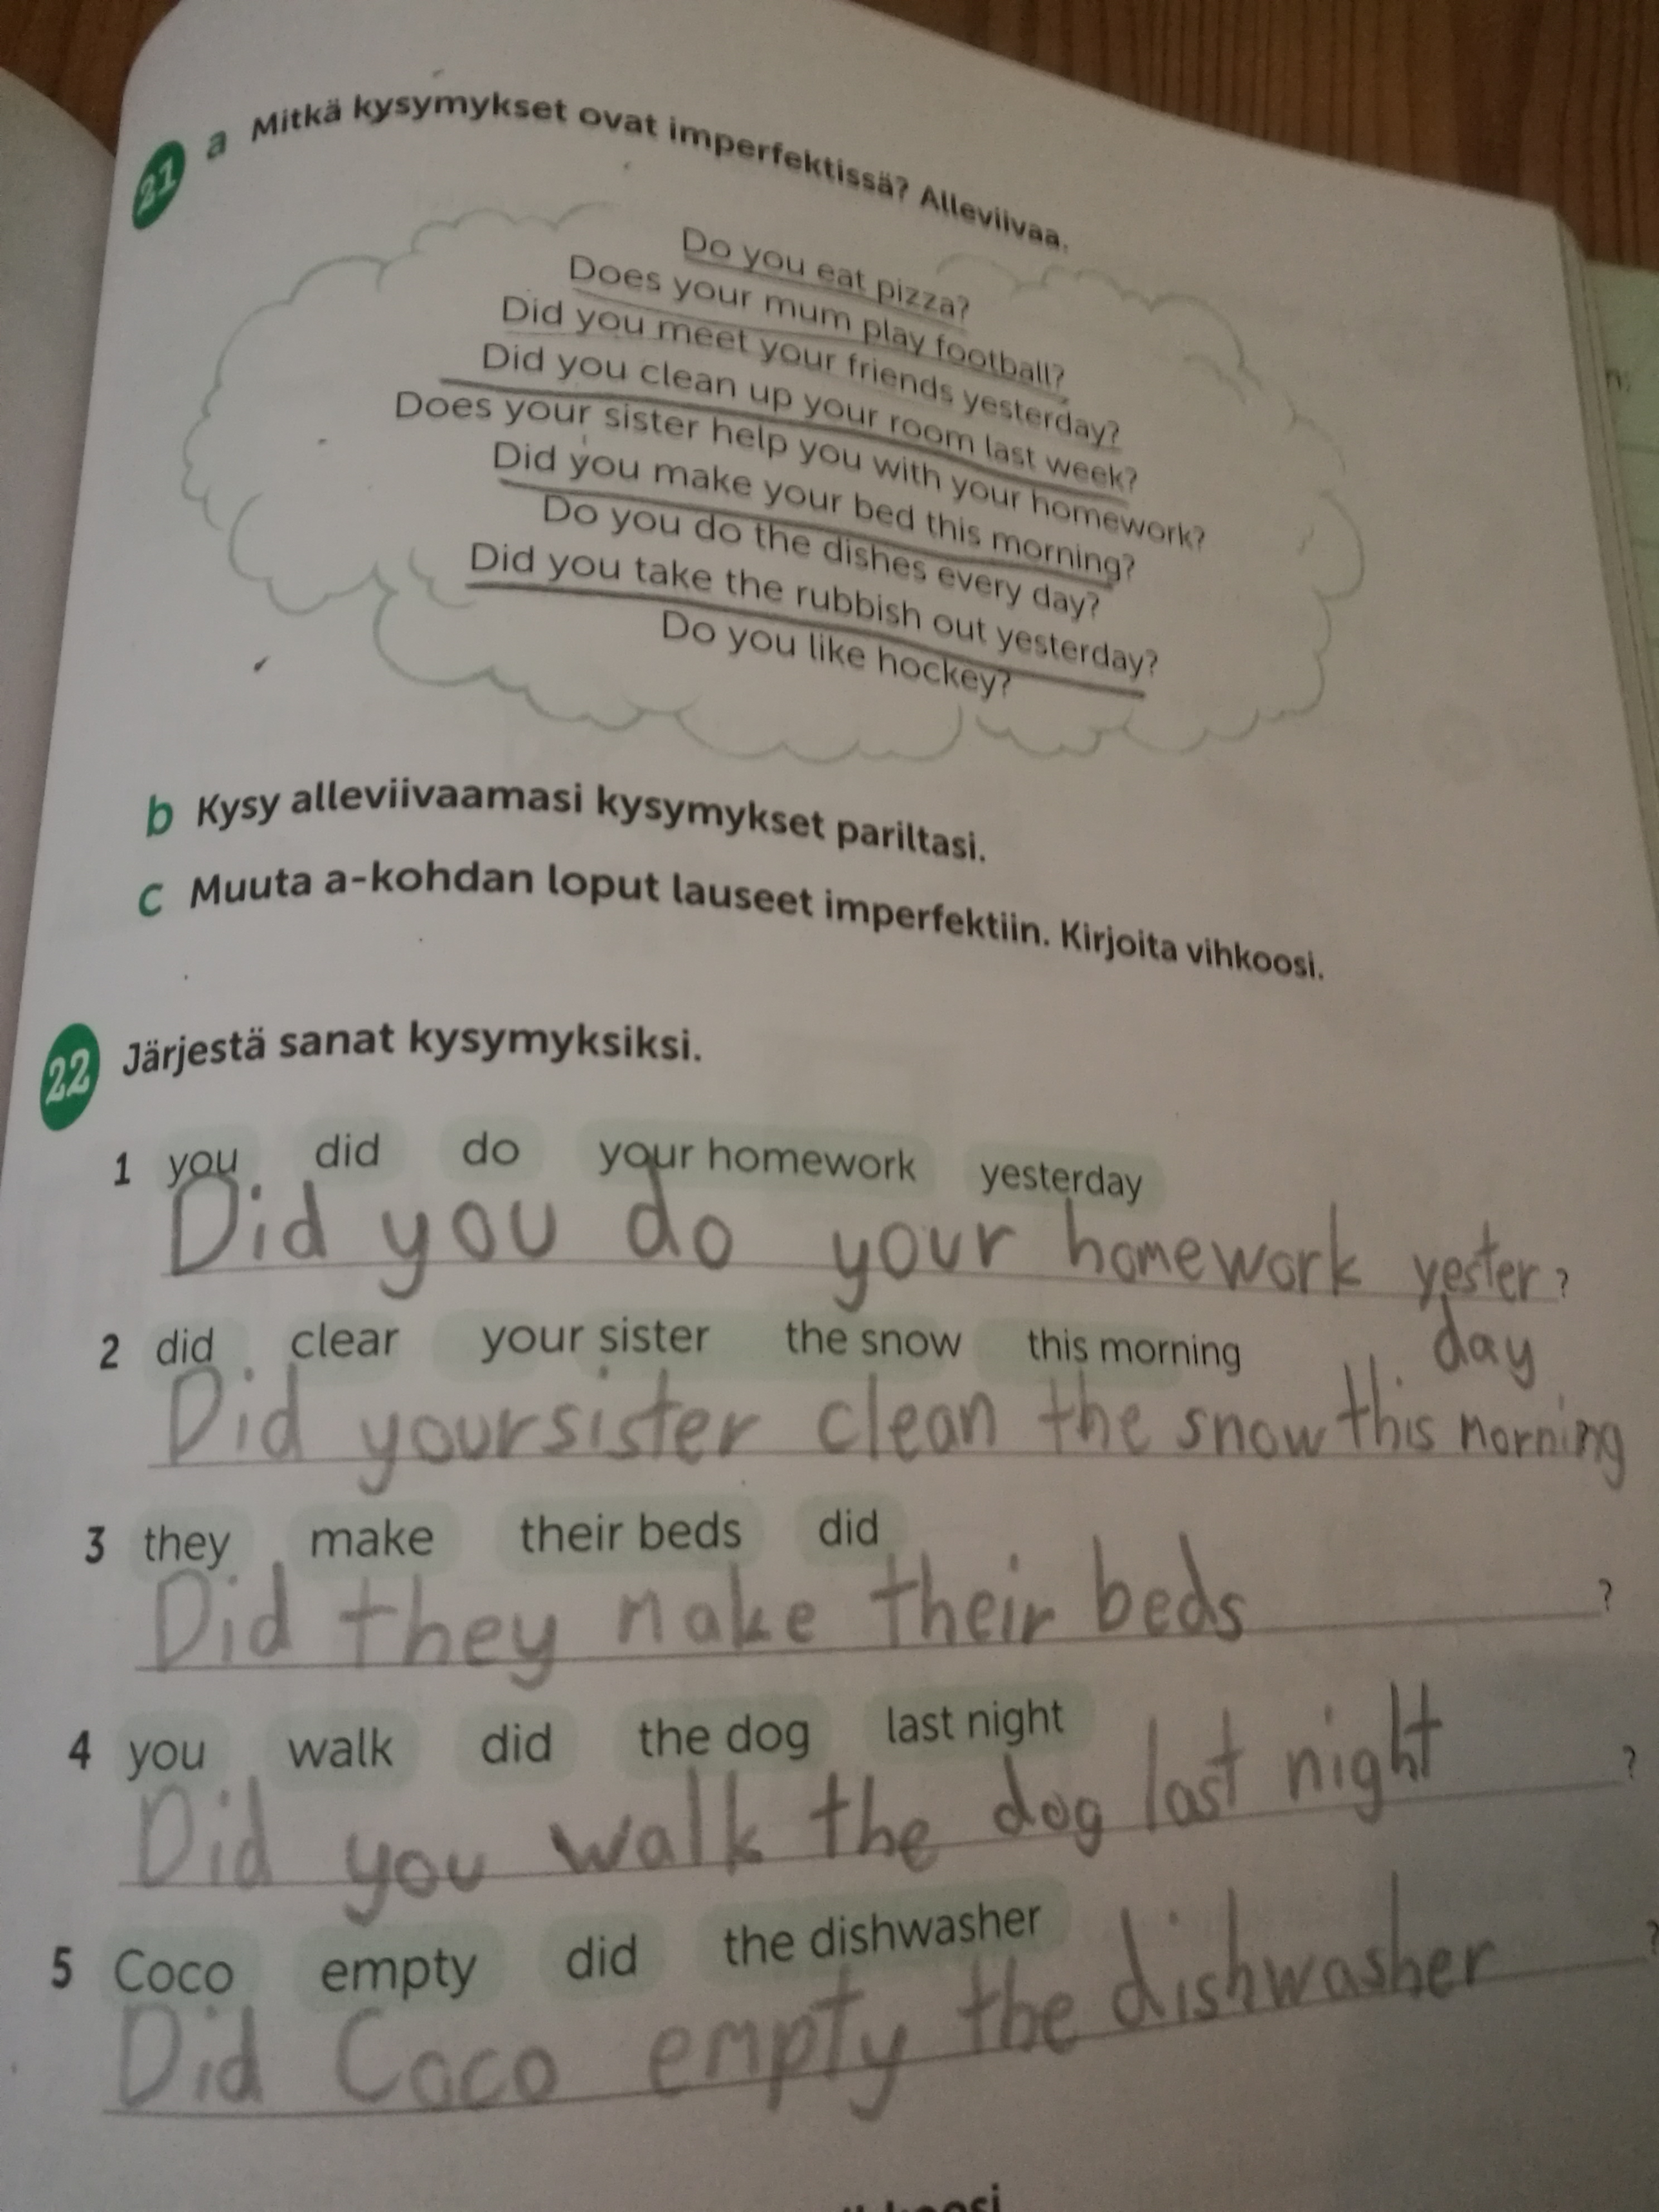 21 a Mitkä kysymykset ovat imperfektissä? Alleviivaa.
Do you eat pizza?
Does your mum play football?
Did you meet your friends yesterday?
Did you clean up your room last week?
Does your sister help you with your homework?
Did you make your bed this morning?
Do you do the dishes every day?
Did you take the rubbish out yesterday?
Do you like hockey?
b Kysy alleviivaamasi kysymykset pariltasi.
c Muuta a-kohdan loput lauseet imperfektiin. Kirjoita vihkoosi.
22 Järjestä sanat kysymyksiksi.
1 you did do your homework yesterday
Did you do your homework yester ?
day
2 did clear your sister the snow this morning
Did your sister clean the snow this morning
3 they make their beds did
Did they make their beds ?
4 you walk did the dog last night
Did you walk the dog last night ?
5 Coco empty did the dishwasher
Did Coco empty the dishwasher ?